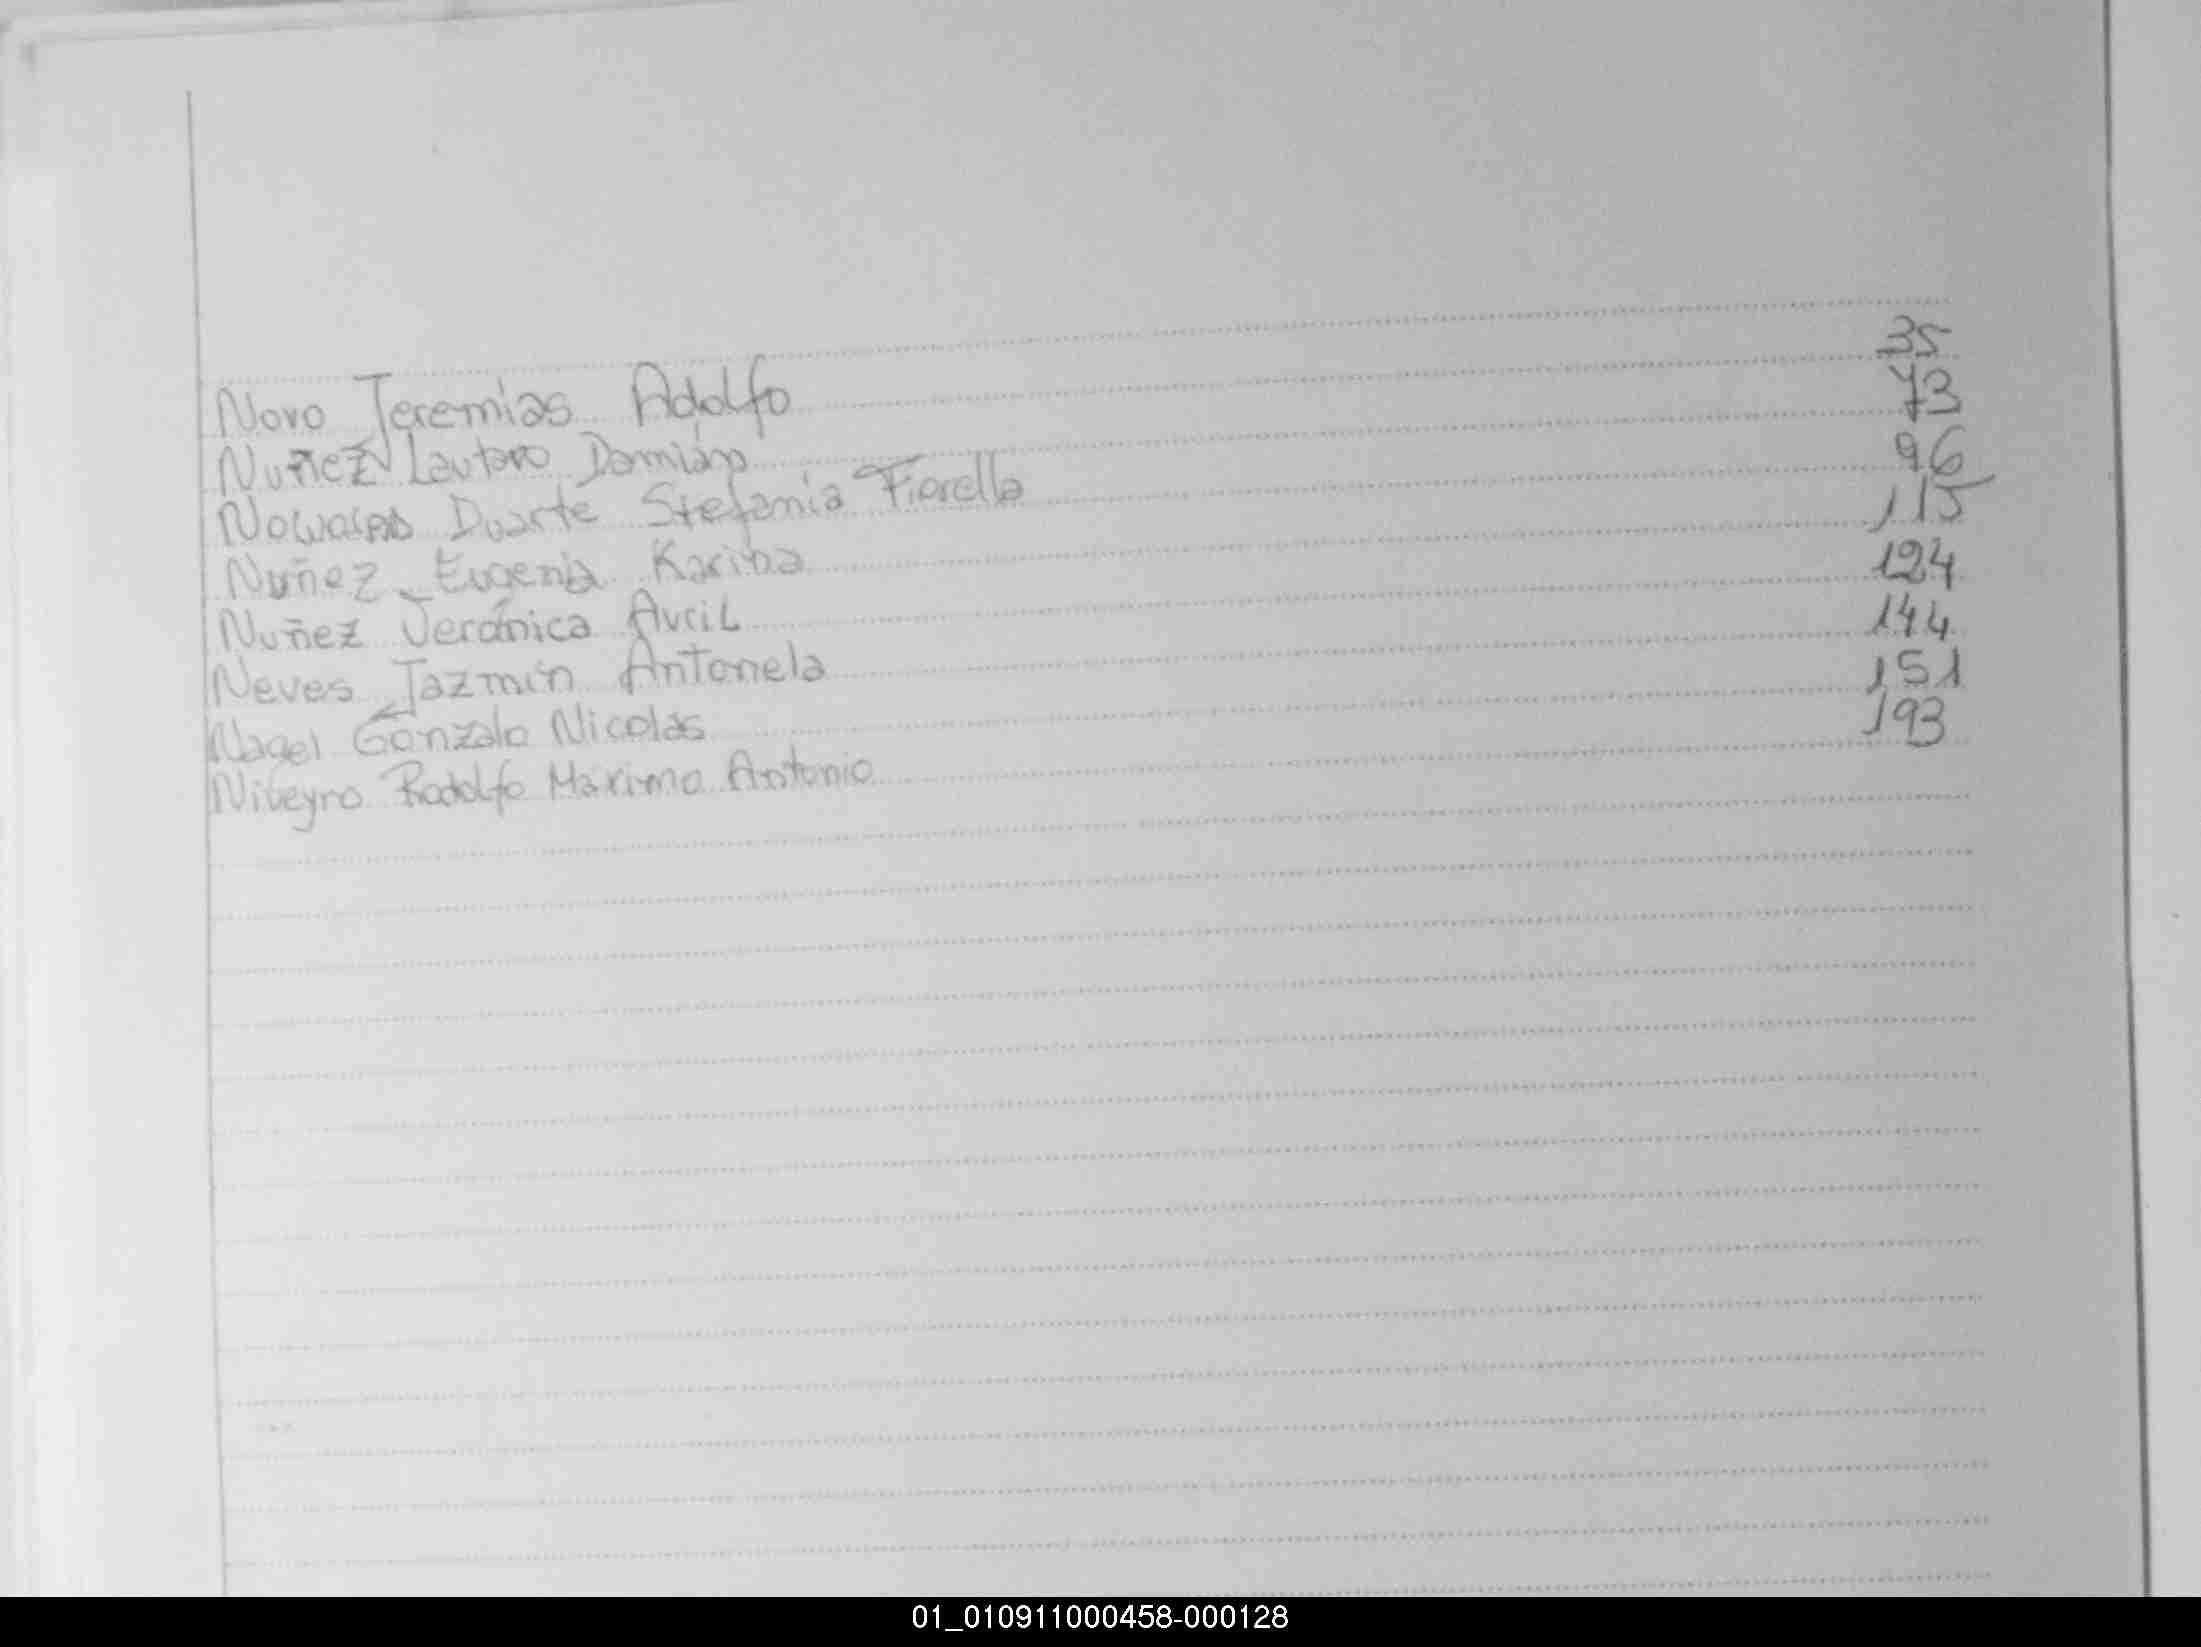 Novo Jeremias Adolfo 35
Nuñez Lautaro Damián 73
Duarte Stefania Fiorella 96
Nuñez Eugenia Karina 115
Nuñez Verónica Avril 124
Neves Jazmin Antonela 144
Nagel Gonzalo Nicolás 151
Niveyro Rodolfo Máximo Antonio 193
01_010911000458-000128